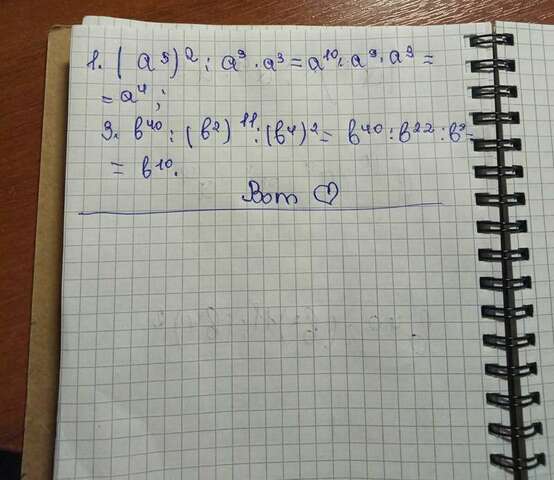 1. (a⁵)² : a⁹ · a³ = a¹⁰ : a⁹ · a³ =
= a⁴;
3. b⁴⁰ : (b²)¹¹ : (b⁴)² = b⁴⁰ : b²² : b⁸ =
= b¹⁰.
Вот ♡